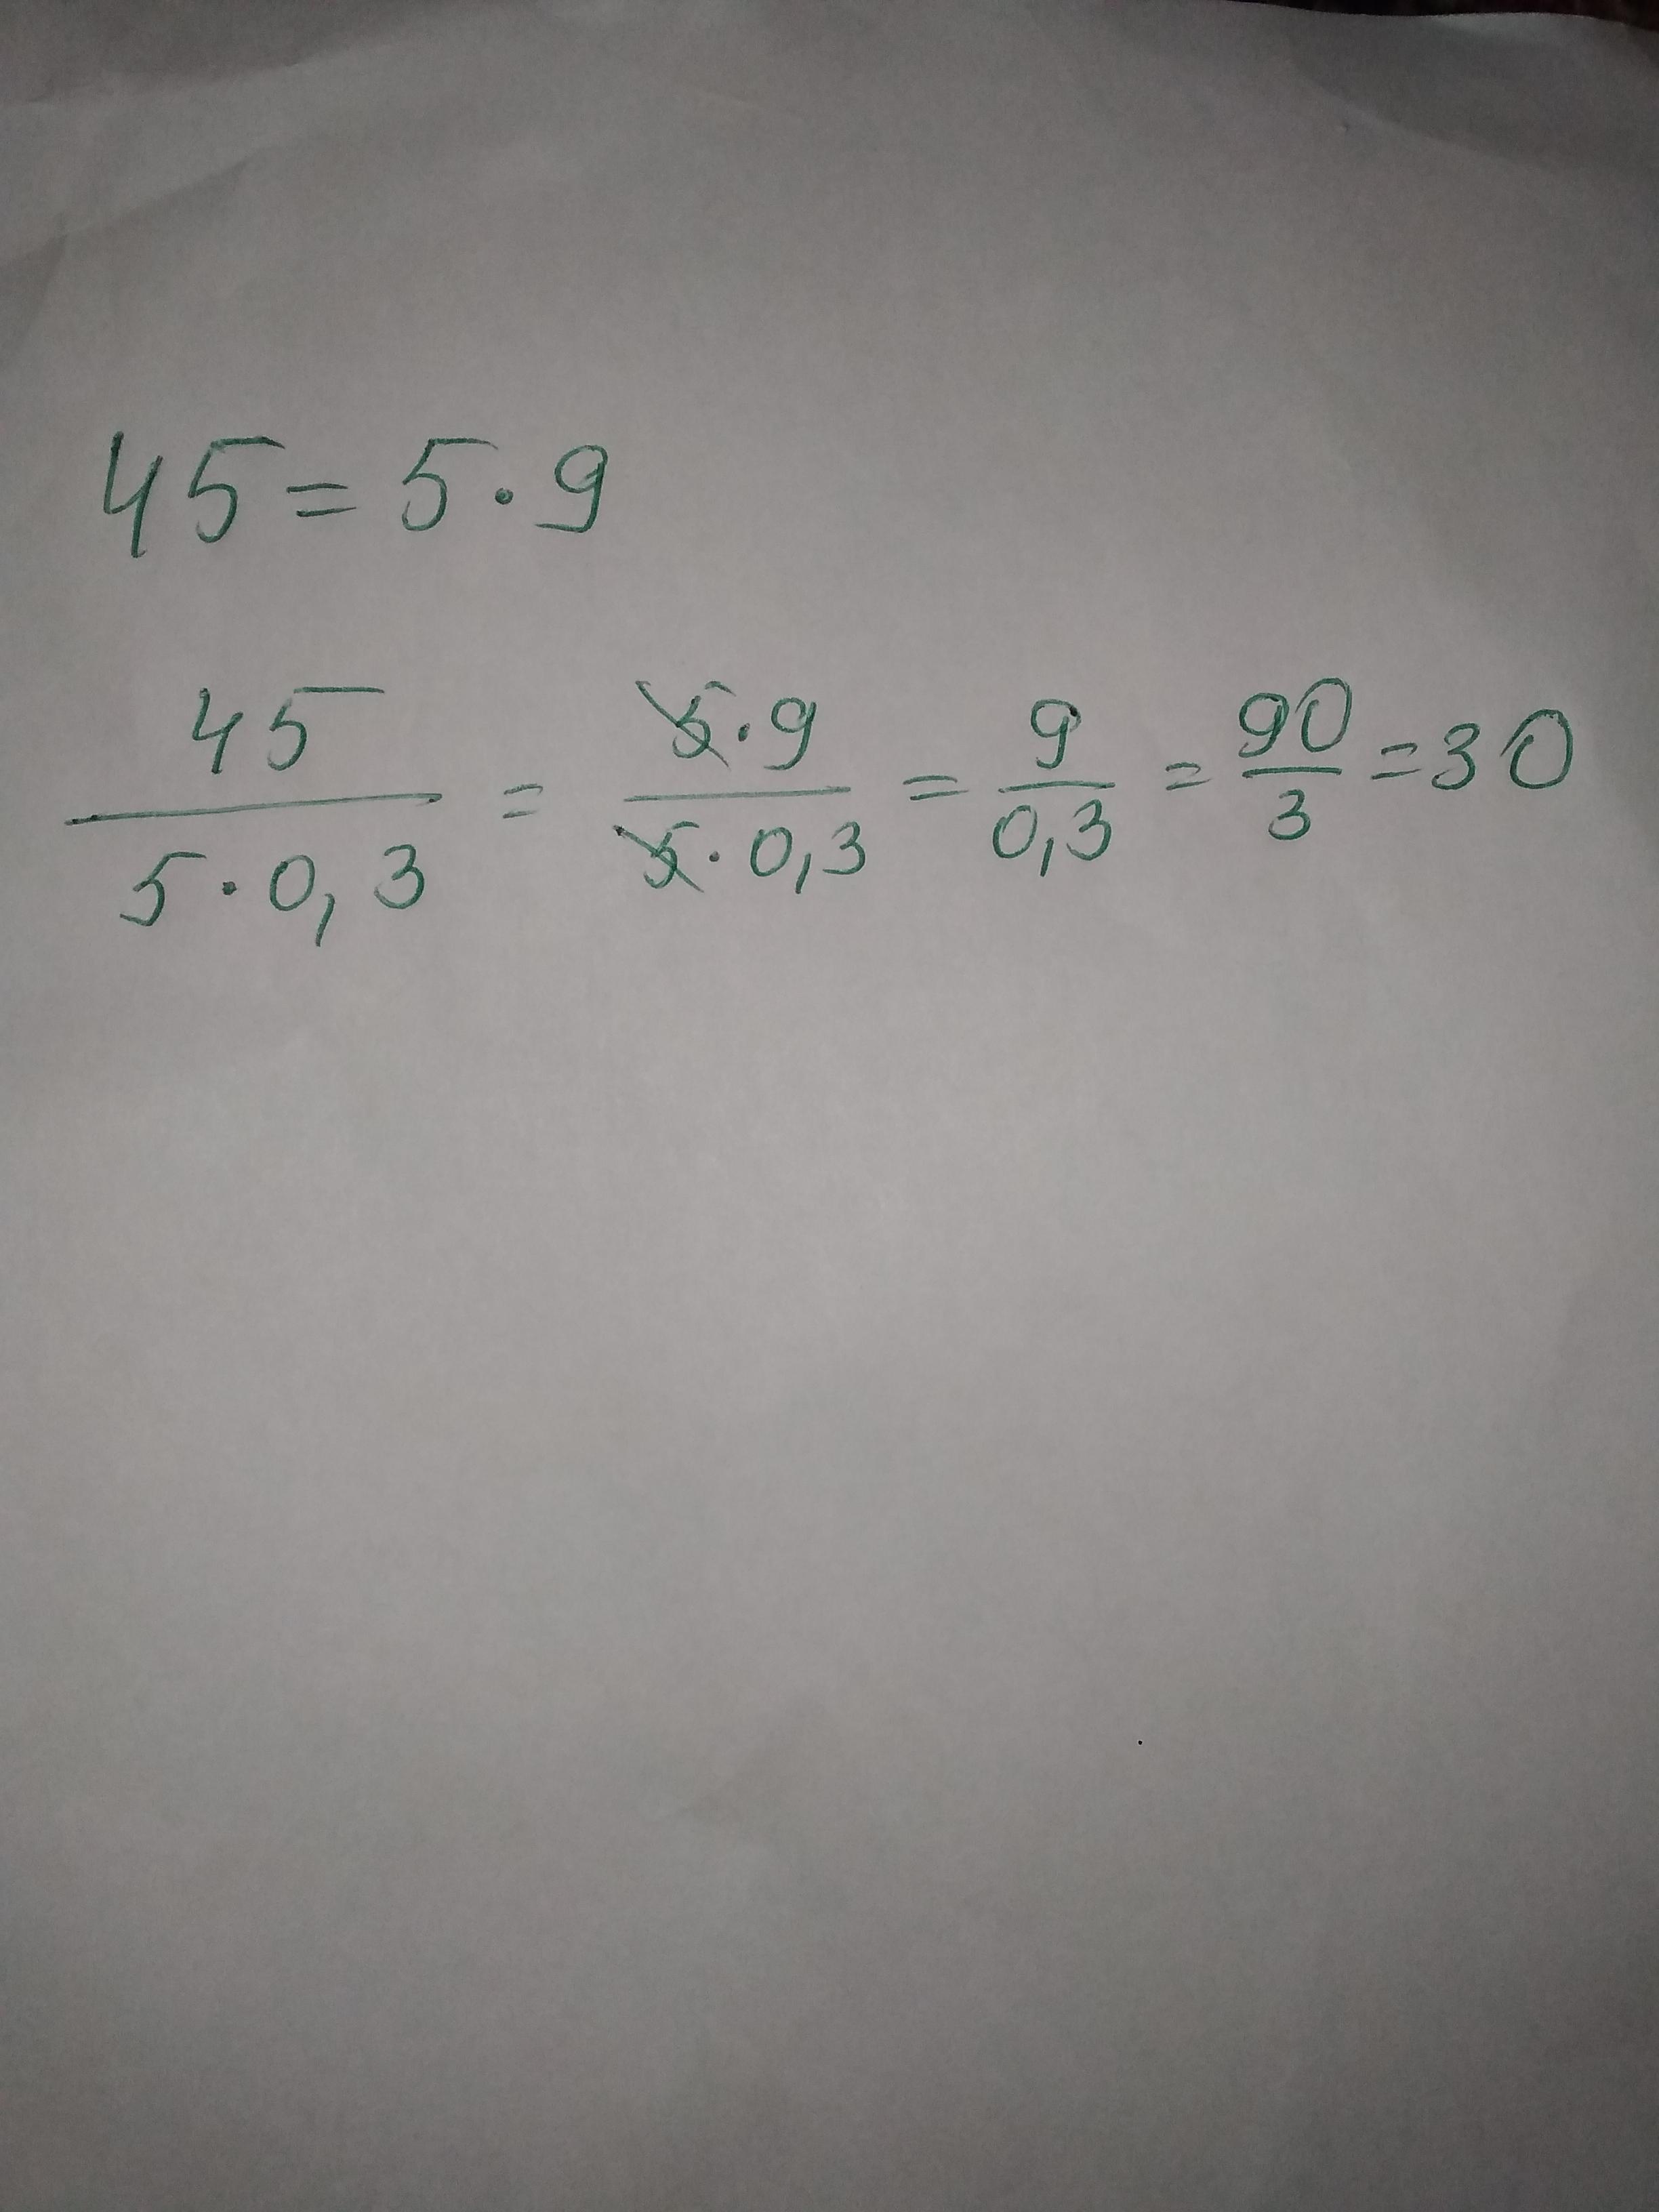 45 = 5 · 9
45/(5 · 0,3) = (5 · 9)/(5 · 0,3) = 9/0,3 = 90/3 = 30